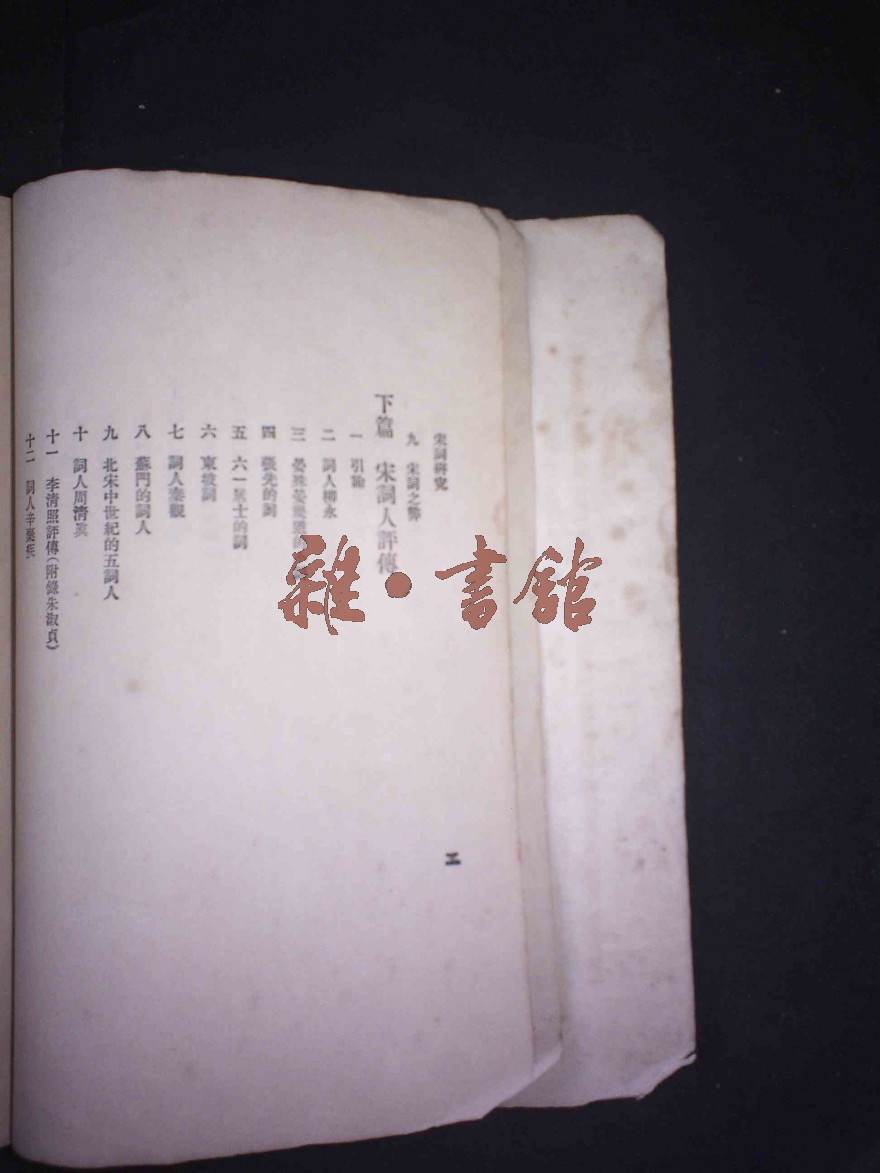 宋詞研究
九 宋詞之弊
下篇 宋詞人評傳
一 引論
二 詞人柳永
三 晏殊晏幾道
四 張先的詞
五 六一居士的詞
六 東坡詞
七 詞人秦觀
八 蘇門的詞人
九 北宋中世紀的五詞人
十 詞人周清眞
十一 李清照評傳(附錄朱淑貞)
十二 詞人辛棄疾
二
雜·書館